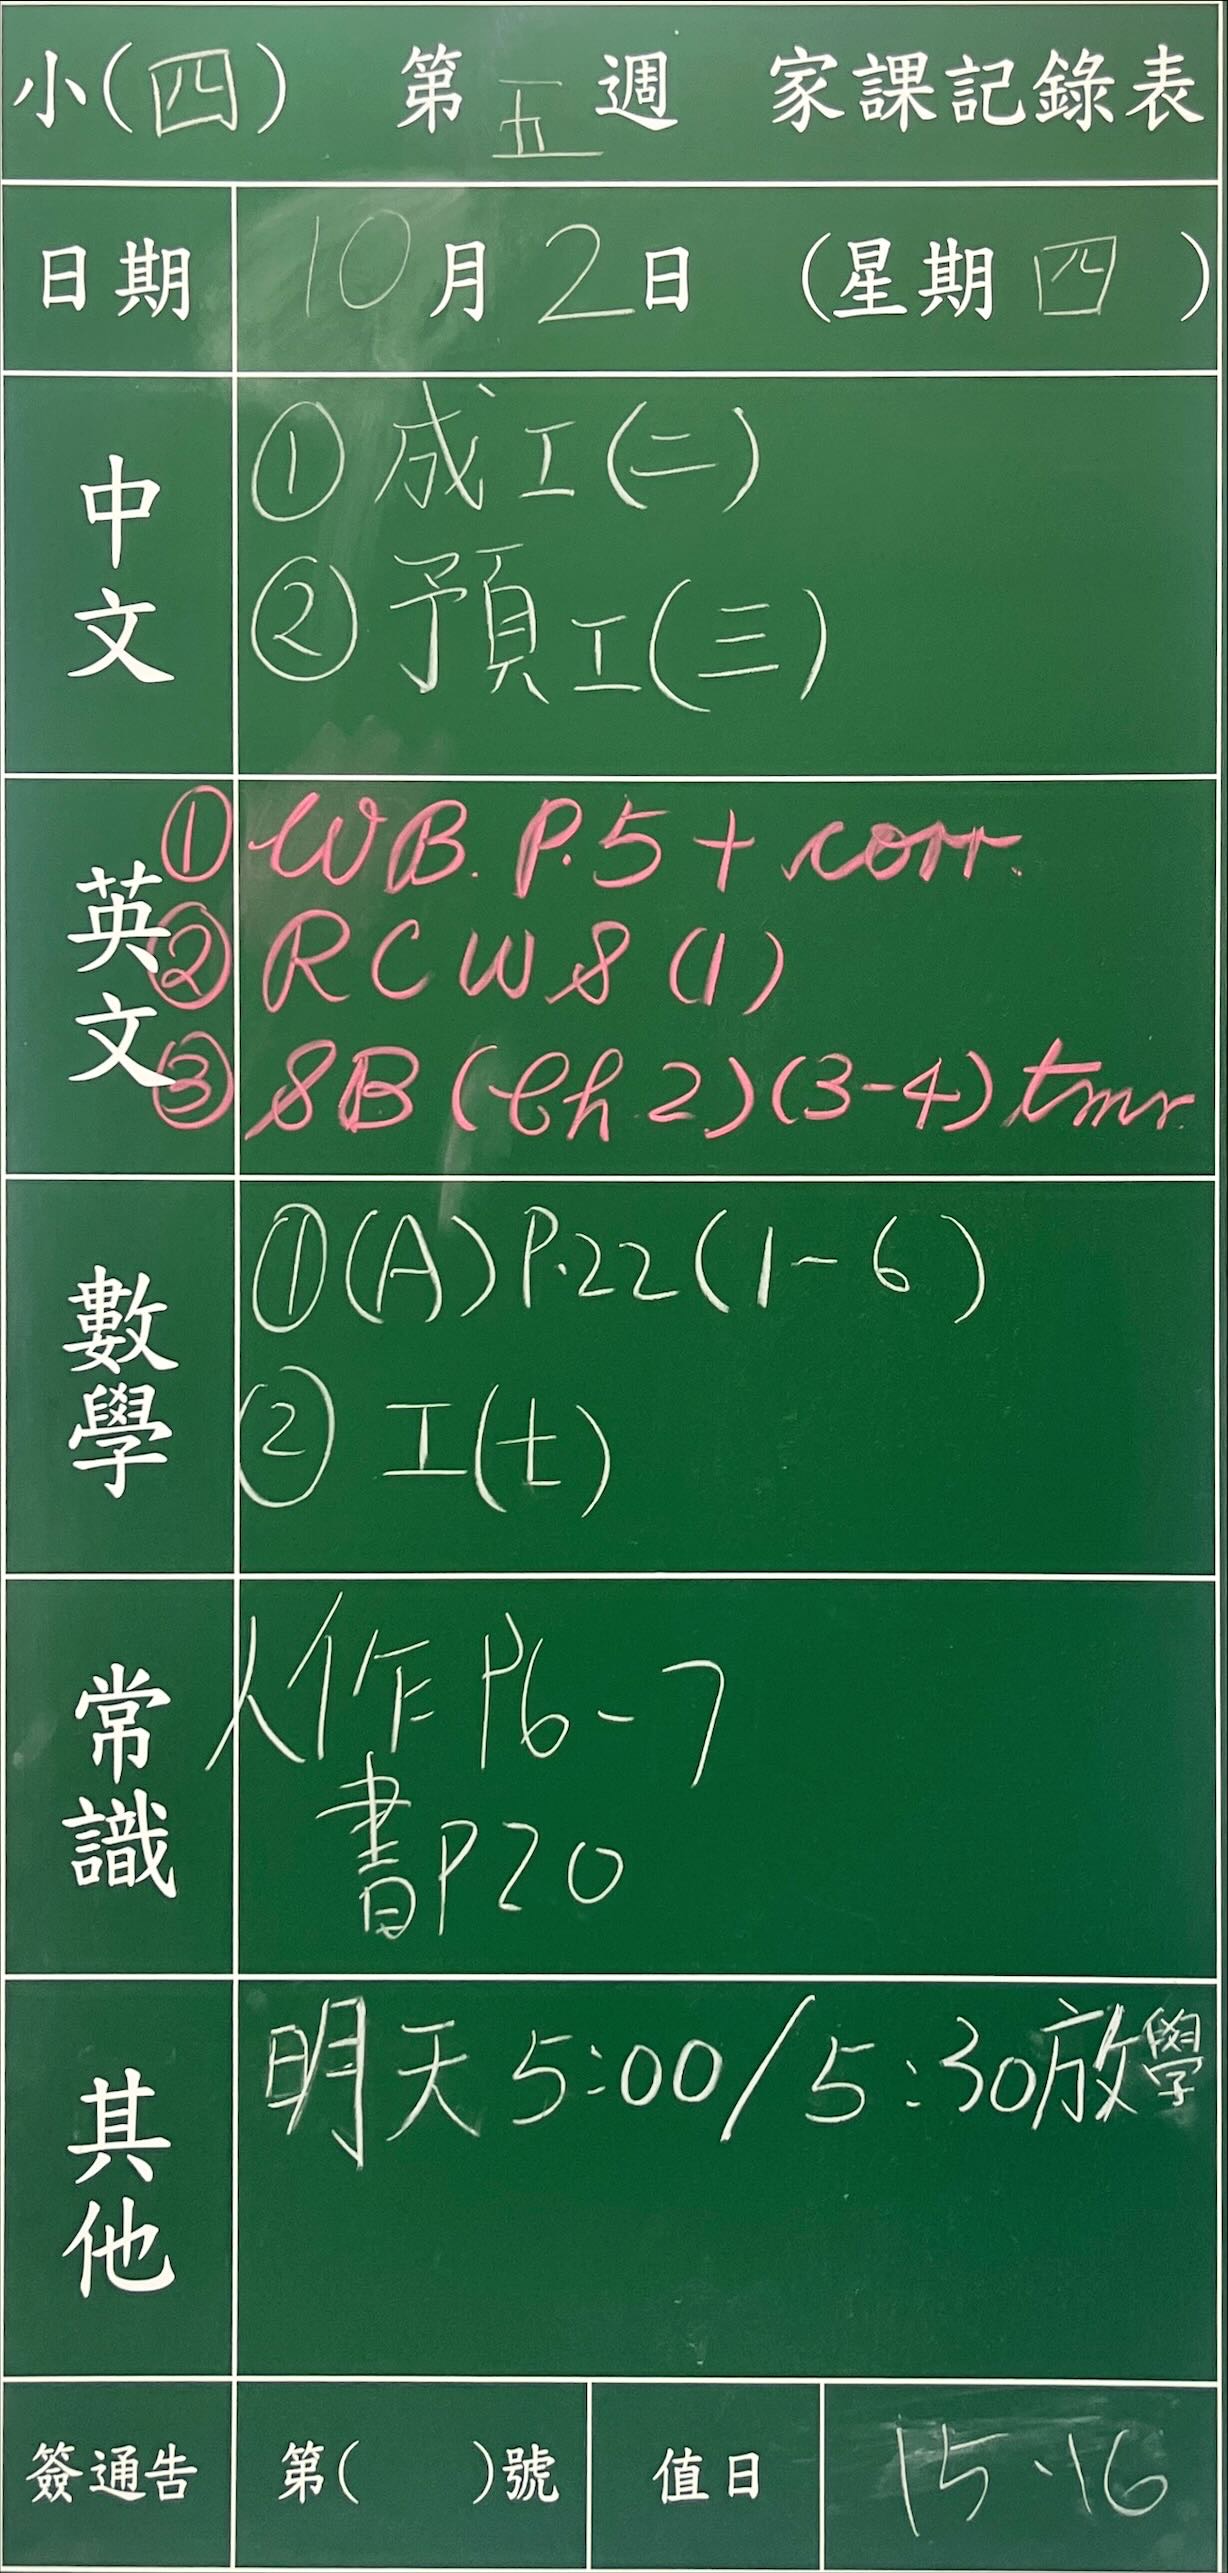 小(四) 第五週 家課記錄表
日期 10月2日 (星期四)
中文
①成工(二)
②預工(三)
英文
①WB. P.5 + corr.
②RCWS (1)
③SB (Ch 2) (3-4) tmr.
數學
①(A) P.22 (1-6)
②工(士)
常識
人作 P6-7
書 P20
其他
明天5:00/5:30放學
簽通告 第( )號 值日 15、16